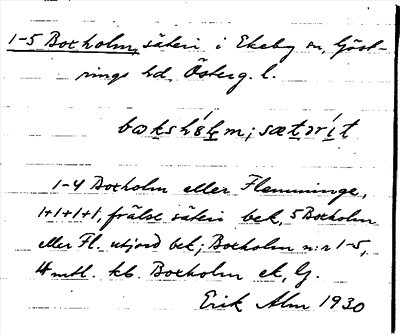 1-5 Boxholm, säteri i Ekeby sn, Göst-
rings hd, Österg. l.
bωkshólm; sætərít
1-4 Boxholm eller Flemminge,
1+1+1+1, frälse säteri bek, 5 Boxholm
eller Fl. utjord bek; Boxholm n:r 1-5,
4 mtl. kb. Boxholm ek, G.
Erik Alm 1930